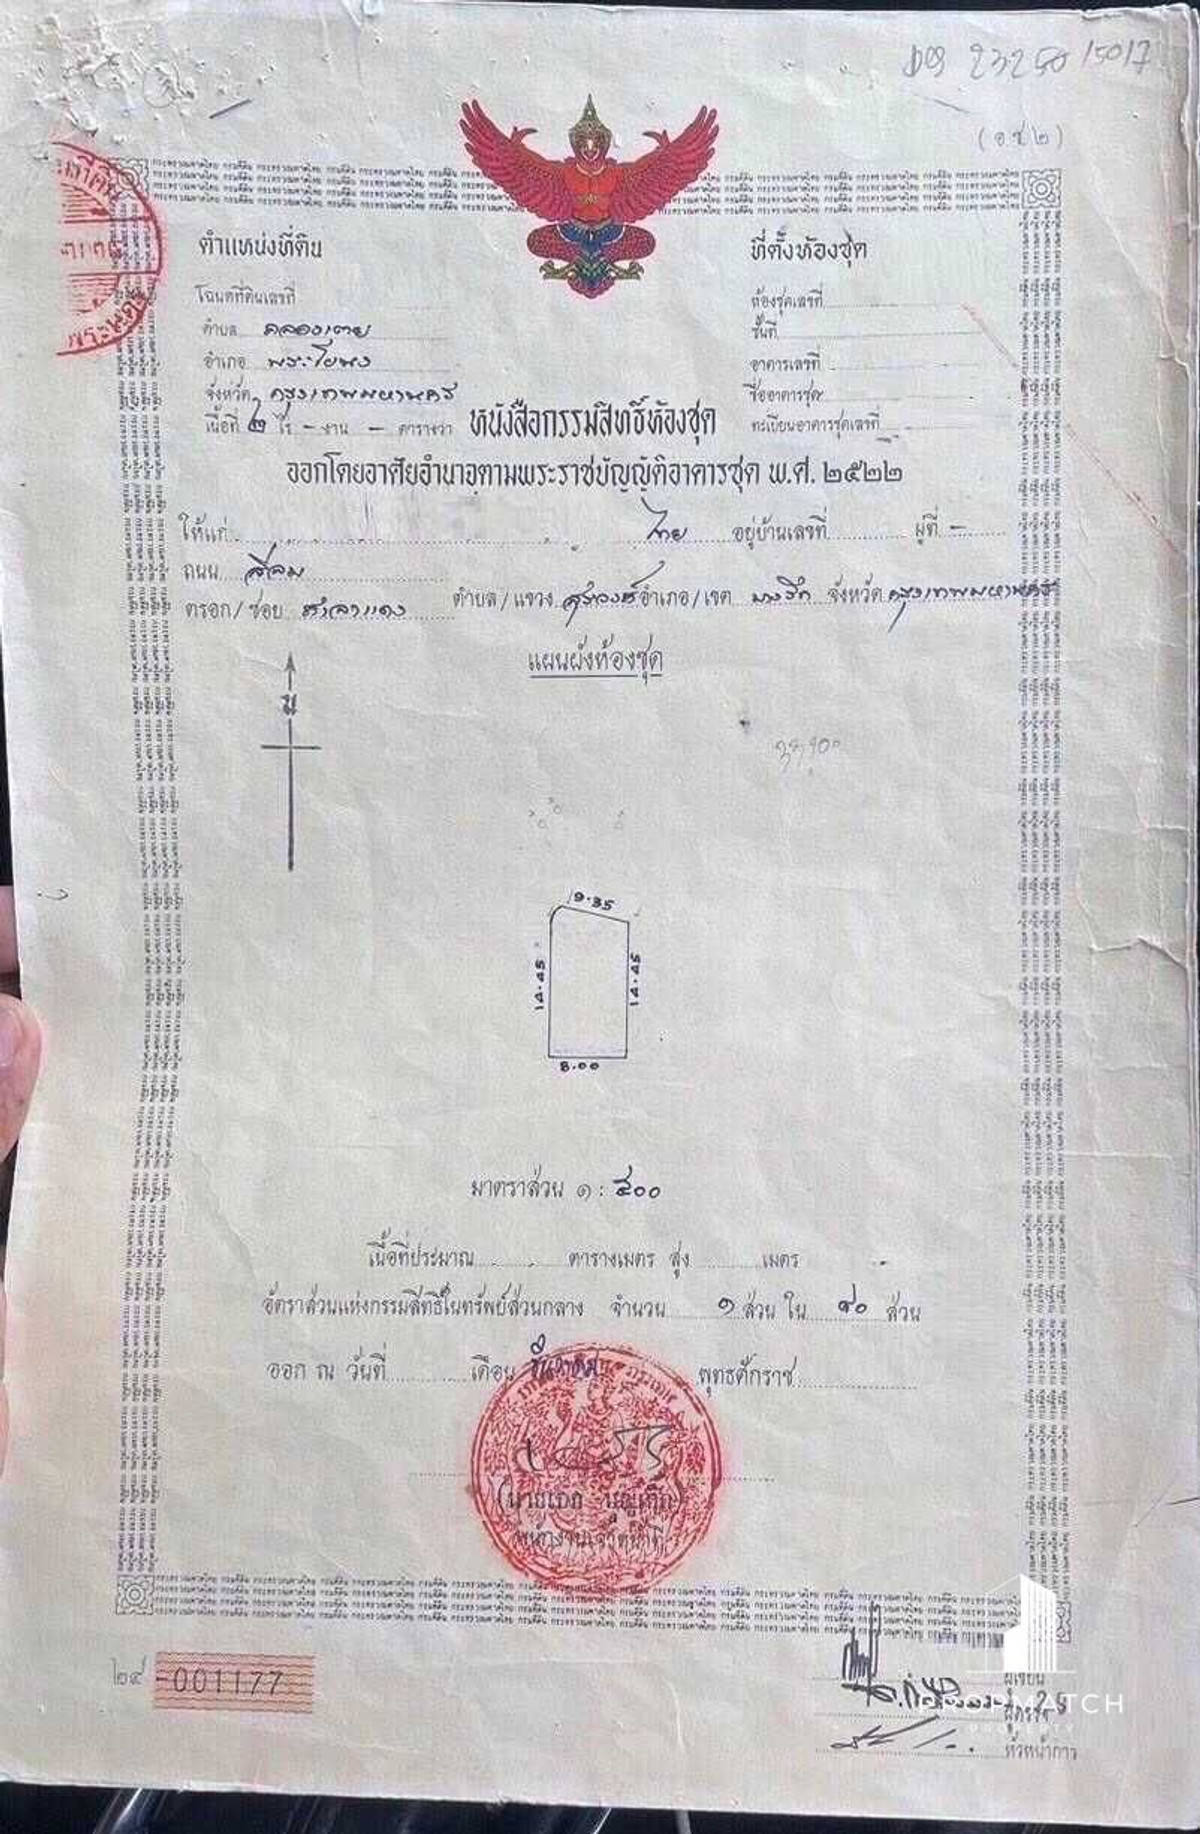 (อ.ช.๒)
ตำแหน่งที่ดิน
ที่ตั้งห้องชุด
โฉนดที่ดินเลขที่
ห้องชุดเลขที่
ตำบล คลองเตย
ชั้นที่
อำเภอ พระโขนง
อาคารเลขที่
จังหวัด กรุงเทพมหานคร
ชื่ออาคารชุด
เนื้อที่ ๒ ไร่ - งาน - ตารางวา
ทะเบียนอาคารชุดเลขที่
หนังสือกรรมสิทธิ์ห้องชุด
ออกโดยอาศัยอำนาจตามพระราชบัญญัติอาคารชุด พ.ศ. ๒๕๒๒
ให้แก่ ไทย อยู่บ้านเลขที่ หมู่ที่ -
ถนน สีลม
ตรอก/ซอย ศาลาแดง ตำบล/แขวง สุริวงศ์ อำเภอ/เขต บางรัก จังหวัด กรุงเทพมหานคร
แผนผังห้องชุด
น
9.35
14.45
14.45
8.00
มาตราส่วน ๑ : ๕๐๐
เนื้อที่ประมาณ ตารางเมตร สูง เมตร
อัตราส่วนแห่งกรรมสิทธิ์ในทรัพย์ส่วนกลาง จำนวน ๑ ส่วน ใน ๙๐ ส่วน
ออก ณ วันที่ เดือน ธันวาคม พุทธศักราช
พนักงานเจ้าหน้าที่
๒๙ -001177
ผู้เขียน
ผู้ตรวจ
หัวหน้าการ
PROPMATCH
PROPERTY